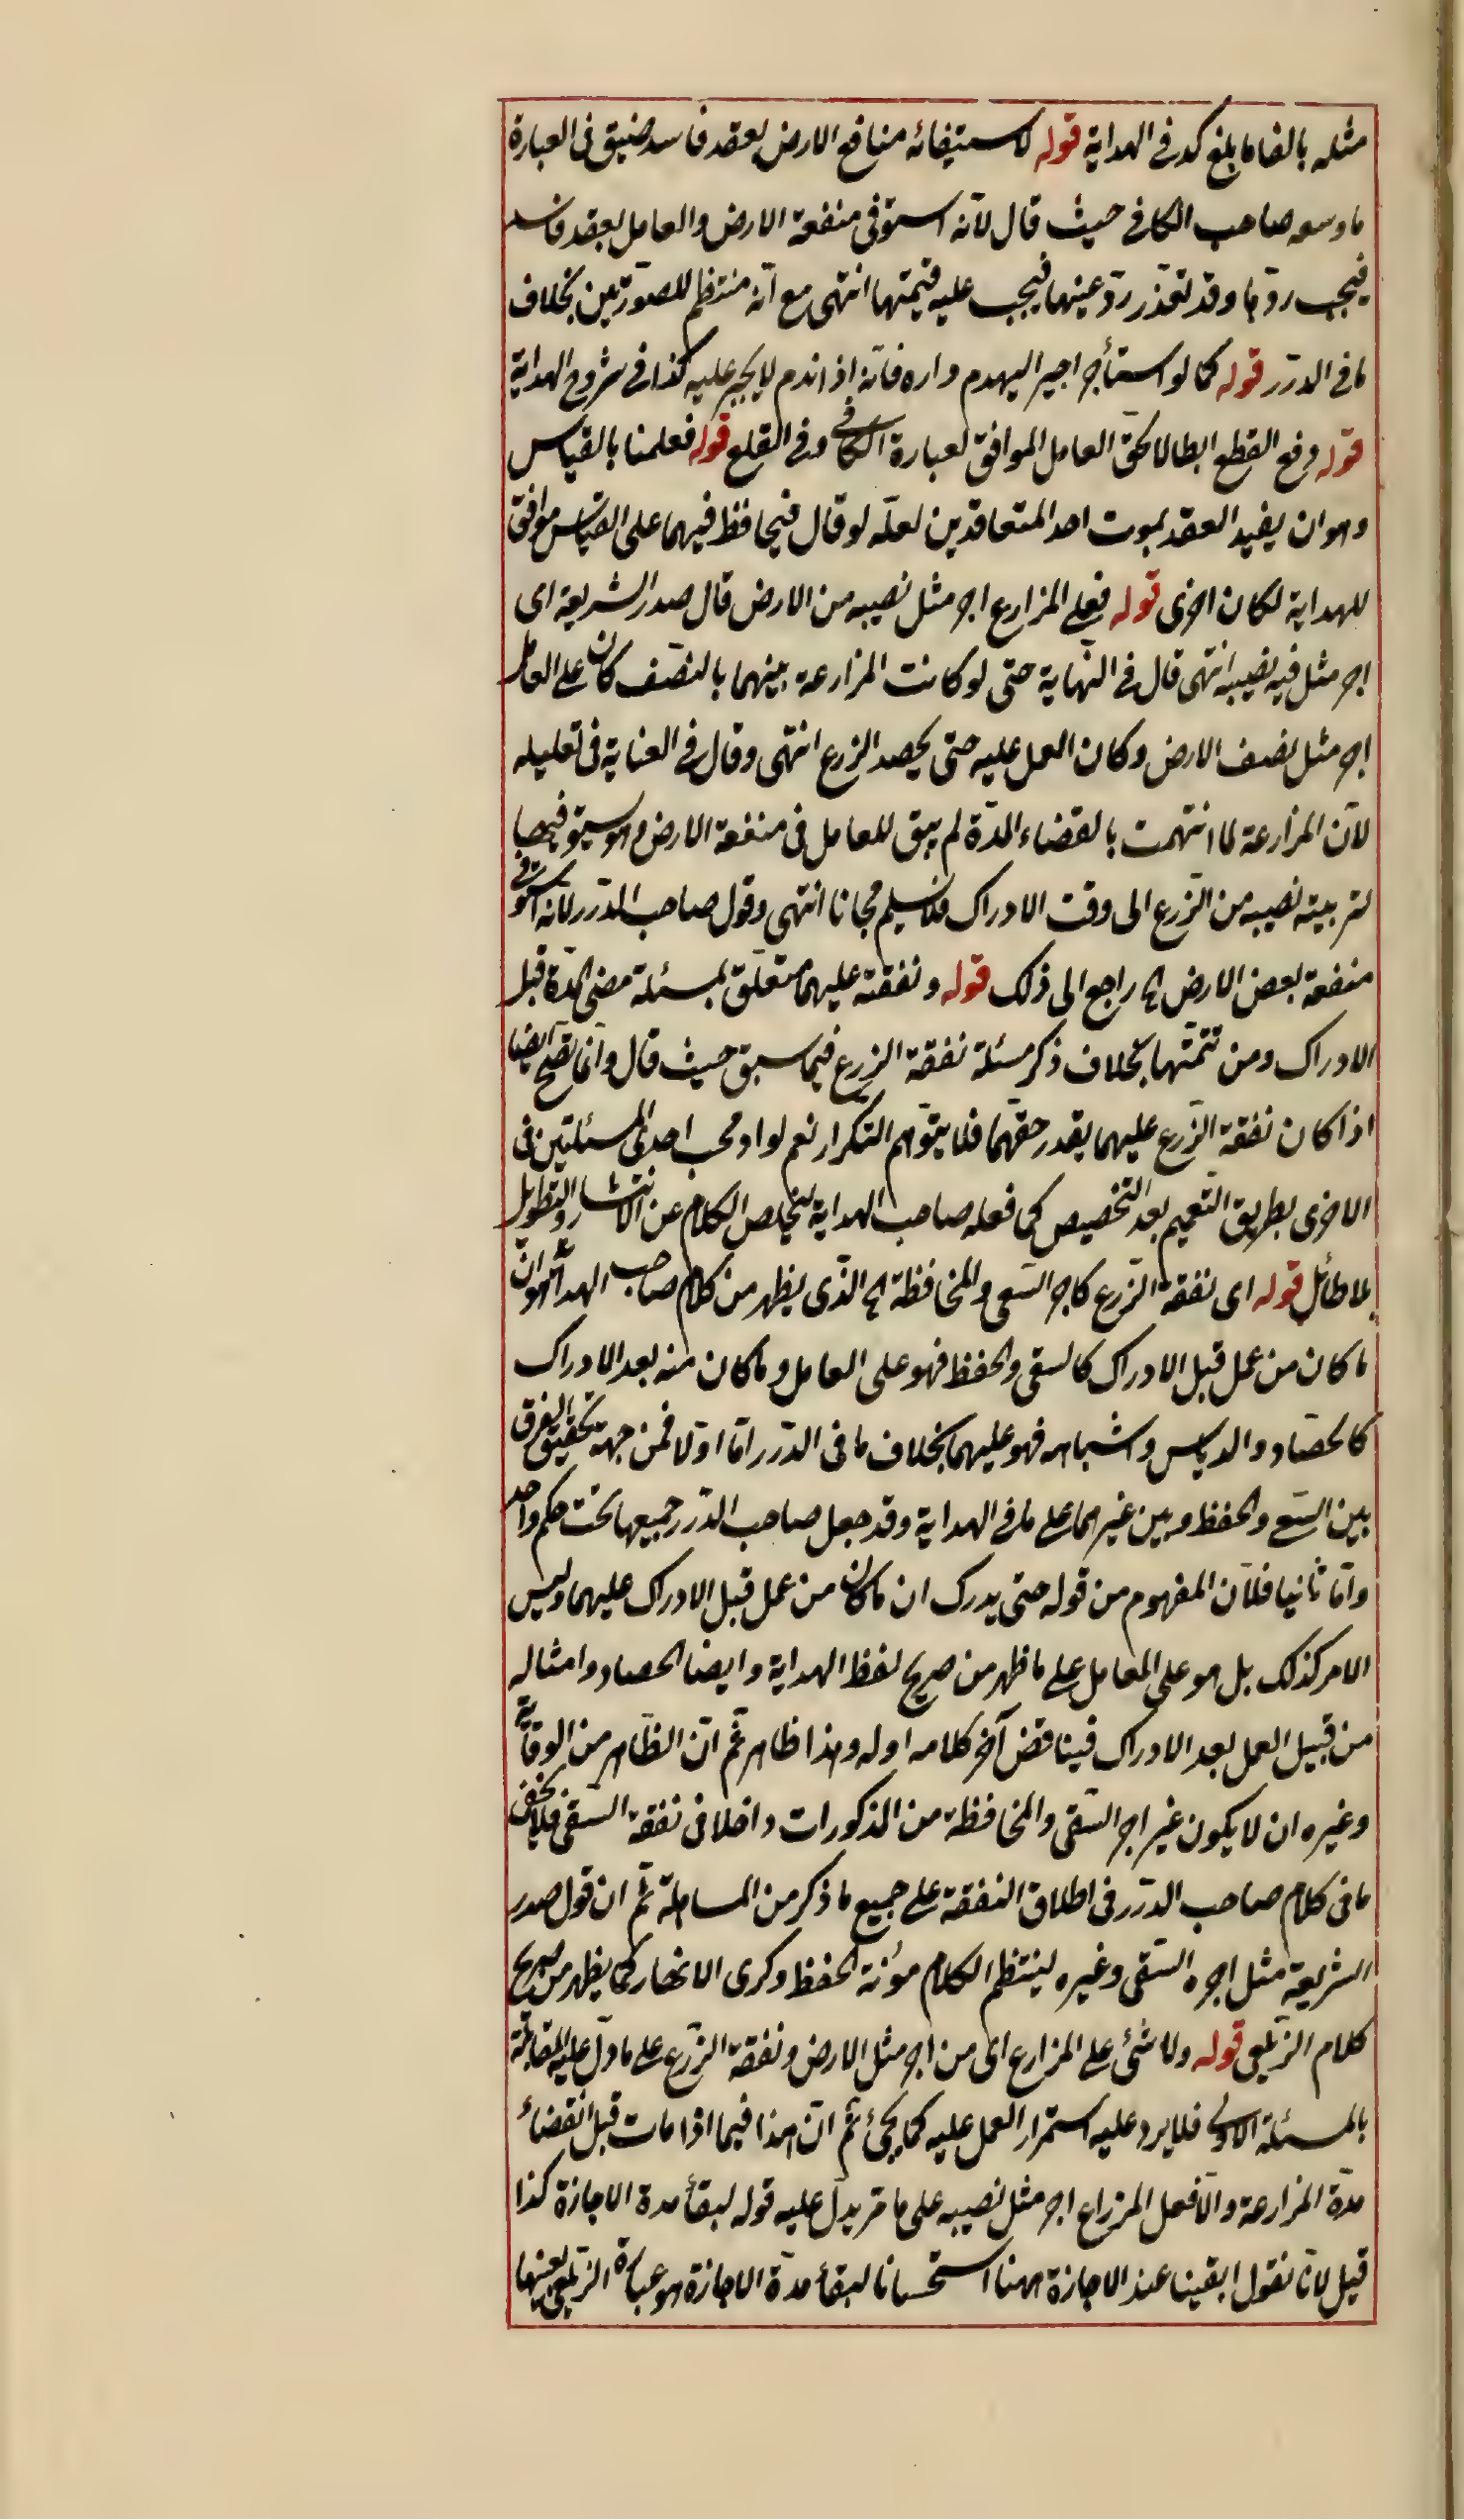 مثله بالغا ما بلغ كذا فى الهداية قوله لاستيفائه منافع الارض بعقد فاسد ضيق فى العبارة
ما وسعه صاحب الكافى حيث قال لانّه استوفى منفعة الارض والعامل بعقد فاسد
فيجب ردّها وقد تعذّر ردّ عينها فيجب عليه قيمتها انتهى مع انّه منتظم للصورتين بخلاف
ما فى الدرر قوله كما لو استأجر اجيرا ليهدم داره فانّه اذا ندم لا يجبر عليه كذا فى شروح الهداية
قوله وفى القطع ابطال حقّ العامل الموافق لعبارة الكافى وفى القلع قوله فعلمنا بالقياس
وهو ان يفيد العقد بموت احد المتعاقدين لعلّه لو قال فيحافظ فيهما على القياس موافق
للهداية لكان احرى قوله فعلى المزارع اجر مثل نصيبه من الارض قال صدر الشريعة اى
اجر مثل فيه نصيبه انتهى قال فى النّهاية حتى لو كانت المزارعة بينهما بالنصف كان على العامل
اجر مثل نصف الارض وكان العمل عليه حتى يحصد الزرع انتهى وقال فى العناية فى تعليله
لانّ المزارعة لما انتهت بانقضاء المدّة لم يبق للعامل فى منفعة الارض وهو يستوفيها
لتربية نصيبه من الزّرع الى وقت الادراك فلا يسلم مجانا انتهى وقول صاحب الدّرر لانّه استوفى
منفعة بعض الارض الخ راجع الى ذلك قوله ونفقته عليهما متعلّق بمسئلة مضى المدّة قبل
الادراك ومن تتمّتها بخلاف ذكر مسئلة نفقة الزرع فيما سبق حيث قال وانّما تصحّ ايضا
اذا كان نفقة الزّرع عليهما بقدر حقّهما فلا يتوّهم التكرار نعم لو ادمج احدى المسئلتين فى
الاخرى بطريق التّعميم بعد التّخصيص كما فعله صاحب الهداية لتخلص الكلام عن الانتشار والتطويل
بلا طائل قوله اى نفقة الزّرع كاجر السّقى والمحافظة الخ الّذى يظهر من كلام صاحب الهداية هو انّ
ما كان من عمل قبل الادراك كالسقى والحفظ فهو على العامل وما كان منه بعد الادراك
كالحصاد والدياس واشباهه فهو عليهما بخلاف ما فى الدّرر امّا اوّلا فمن جهة تحقيق الفرق
بين السّقى والحفظ وبين غيرهما على ما فى الهداية وقد جعل صاحب الدّرر جميعها تحت حكم واحد
وامّا ثانيا فلانّ المفهوم من قوله حتى يدرك ان ما كان من عمل قبل الادراك عليهما وليس
الامر كذلك بل هو على العامل على ما ظهر من صريح لفظ الهداية وايضا الحصاد وامثاله
من قبيل العمل بعد الادراك فيناقض آخر كلامه اوله وهذا ظاهر ثمّ انّ الظّاهر من الوقاية
وغيره ان لا يكون غير اجر السّقى والمحافظة من المذكورات داخلا فى نفقة السّقى فلا يخفى
ما فى كلام صاحب الدّرر فى اطلاق النفقة على جميع ما ذكر من المساهلة ثمّ ان قول صدر
الشريعة مثل اجرة السّقى وغيره لينتظم الكلام مؤنة الحفظ وكرى الانهار كما يظهر من صريح
كلام الزّيلعى قوله ولا شئ على المزارع اى من اجر مثل الارض ونفقة الزّرع على ما دلّ عليه المقابلة
بالمسئلة الاولى فلا يرد عليه استمرار العمل عليه كما يجئ ثمّ انّ هذا فيما اذا مات قبل انقضاء
مدّة المزارعة والّا فعلى المزراع اجر مثل نصيبه على ما مرّ يدلّ عليه قوله لبقاء مدة الاجازة كذا
قيل لانّا نقول ابقينا عند الاجازة ههنا استحسانا لبقاء مدّة الاجازة هو عبارة الزّيلعى بعينها